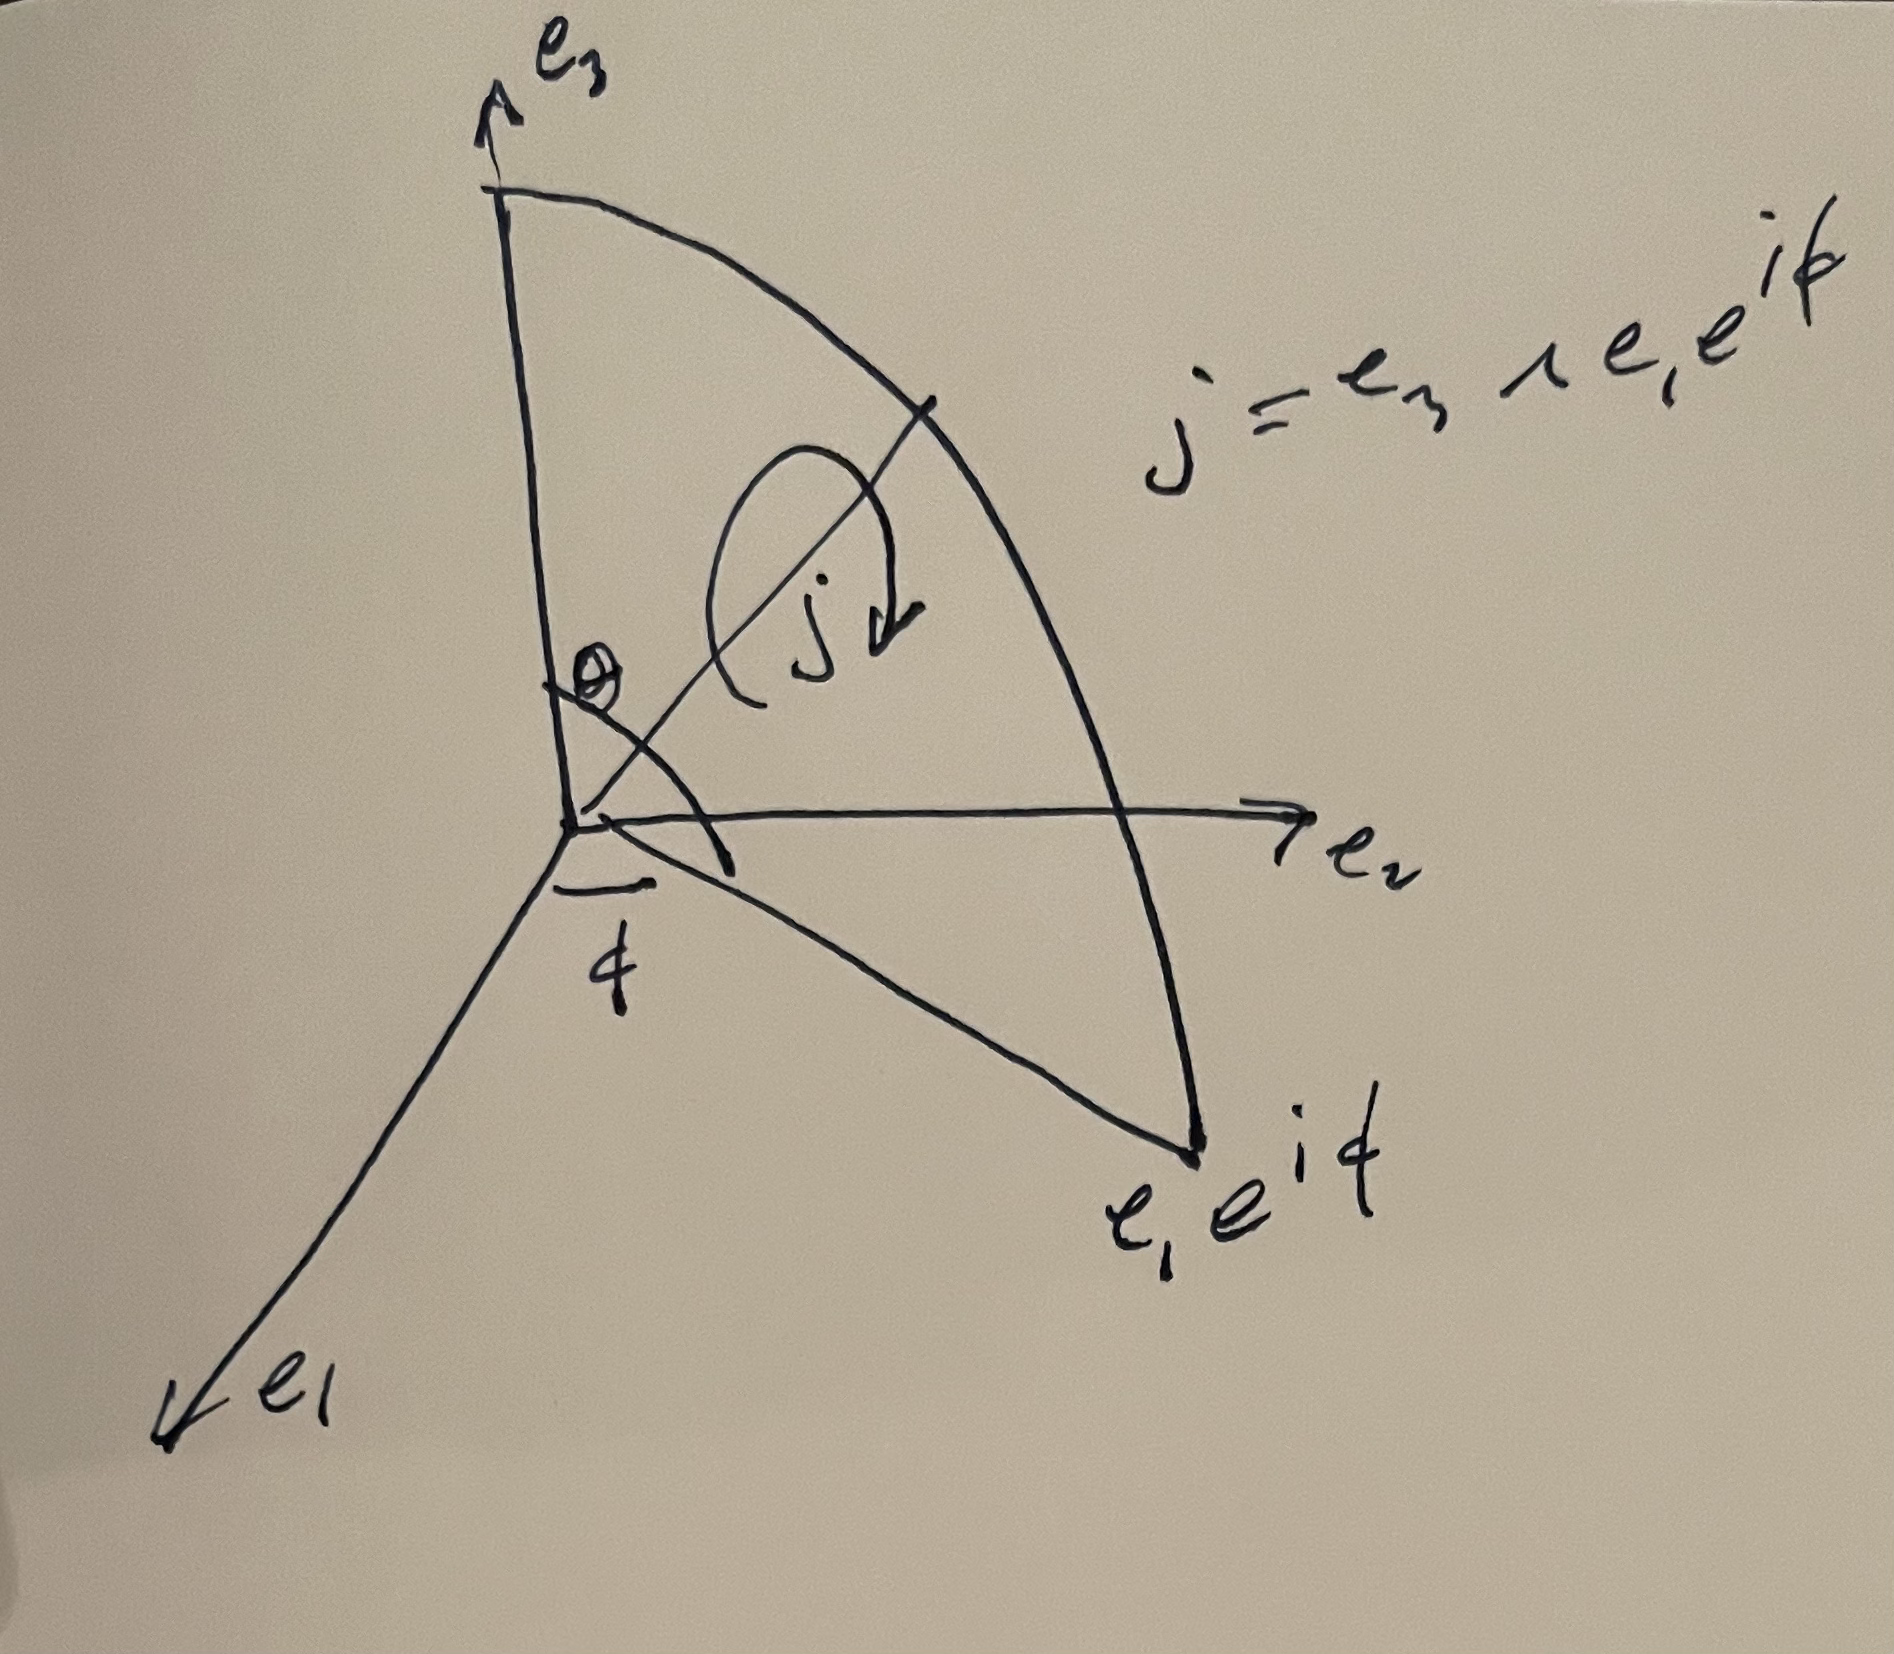 e₃
j = e₃ ∧ e₁ e^{iϕ}
j
θ
e₂
ϕ
e₁ e^{iϕ}
e₁